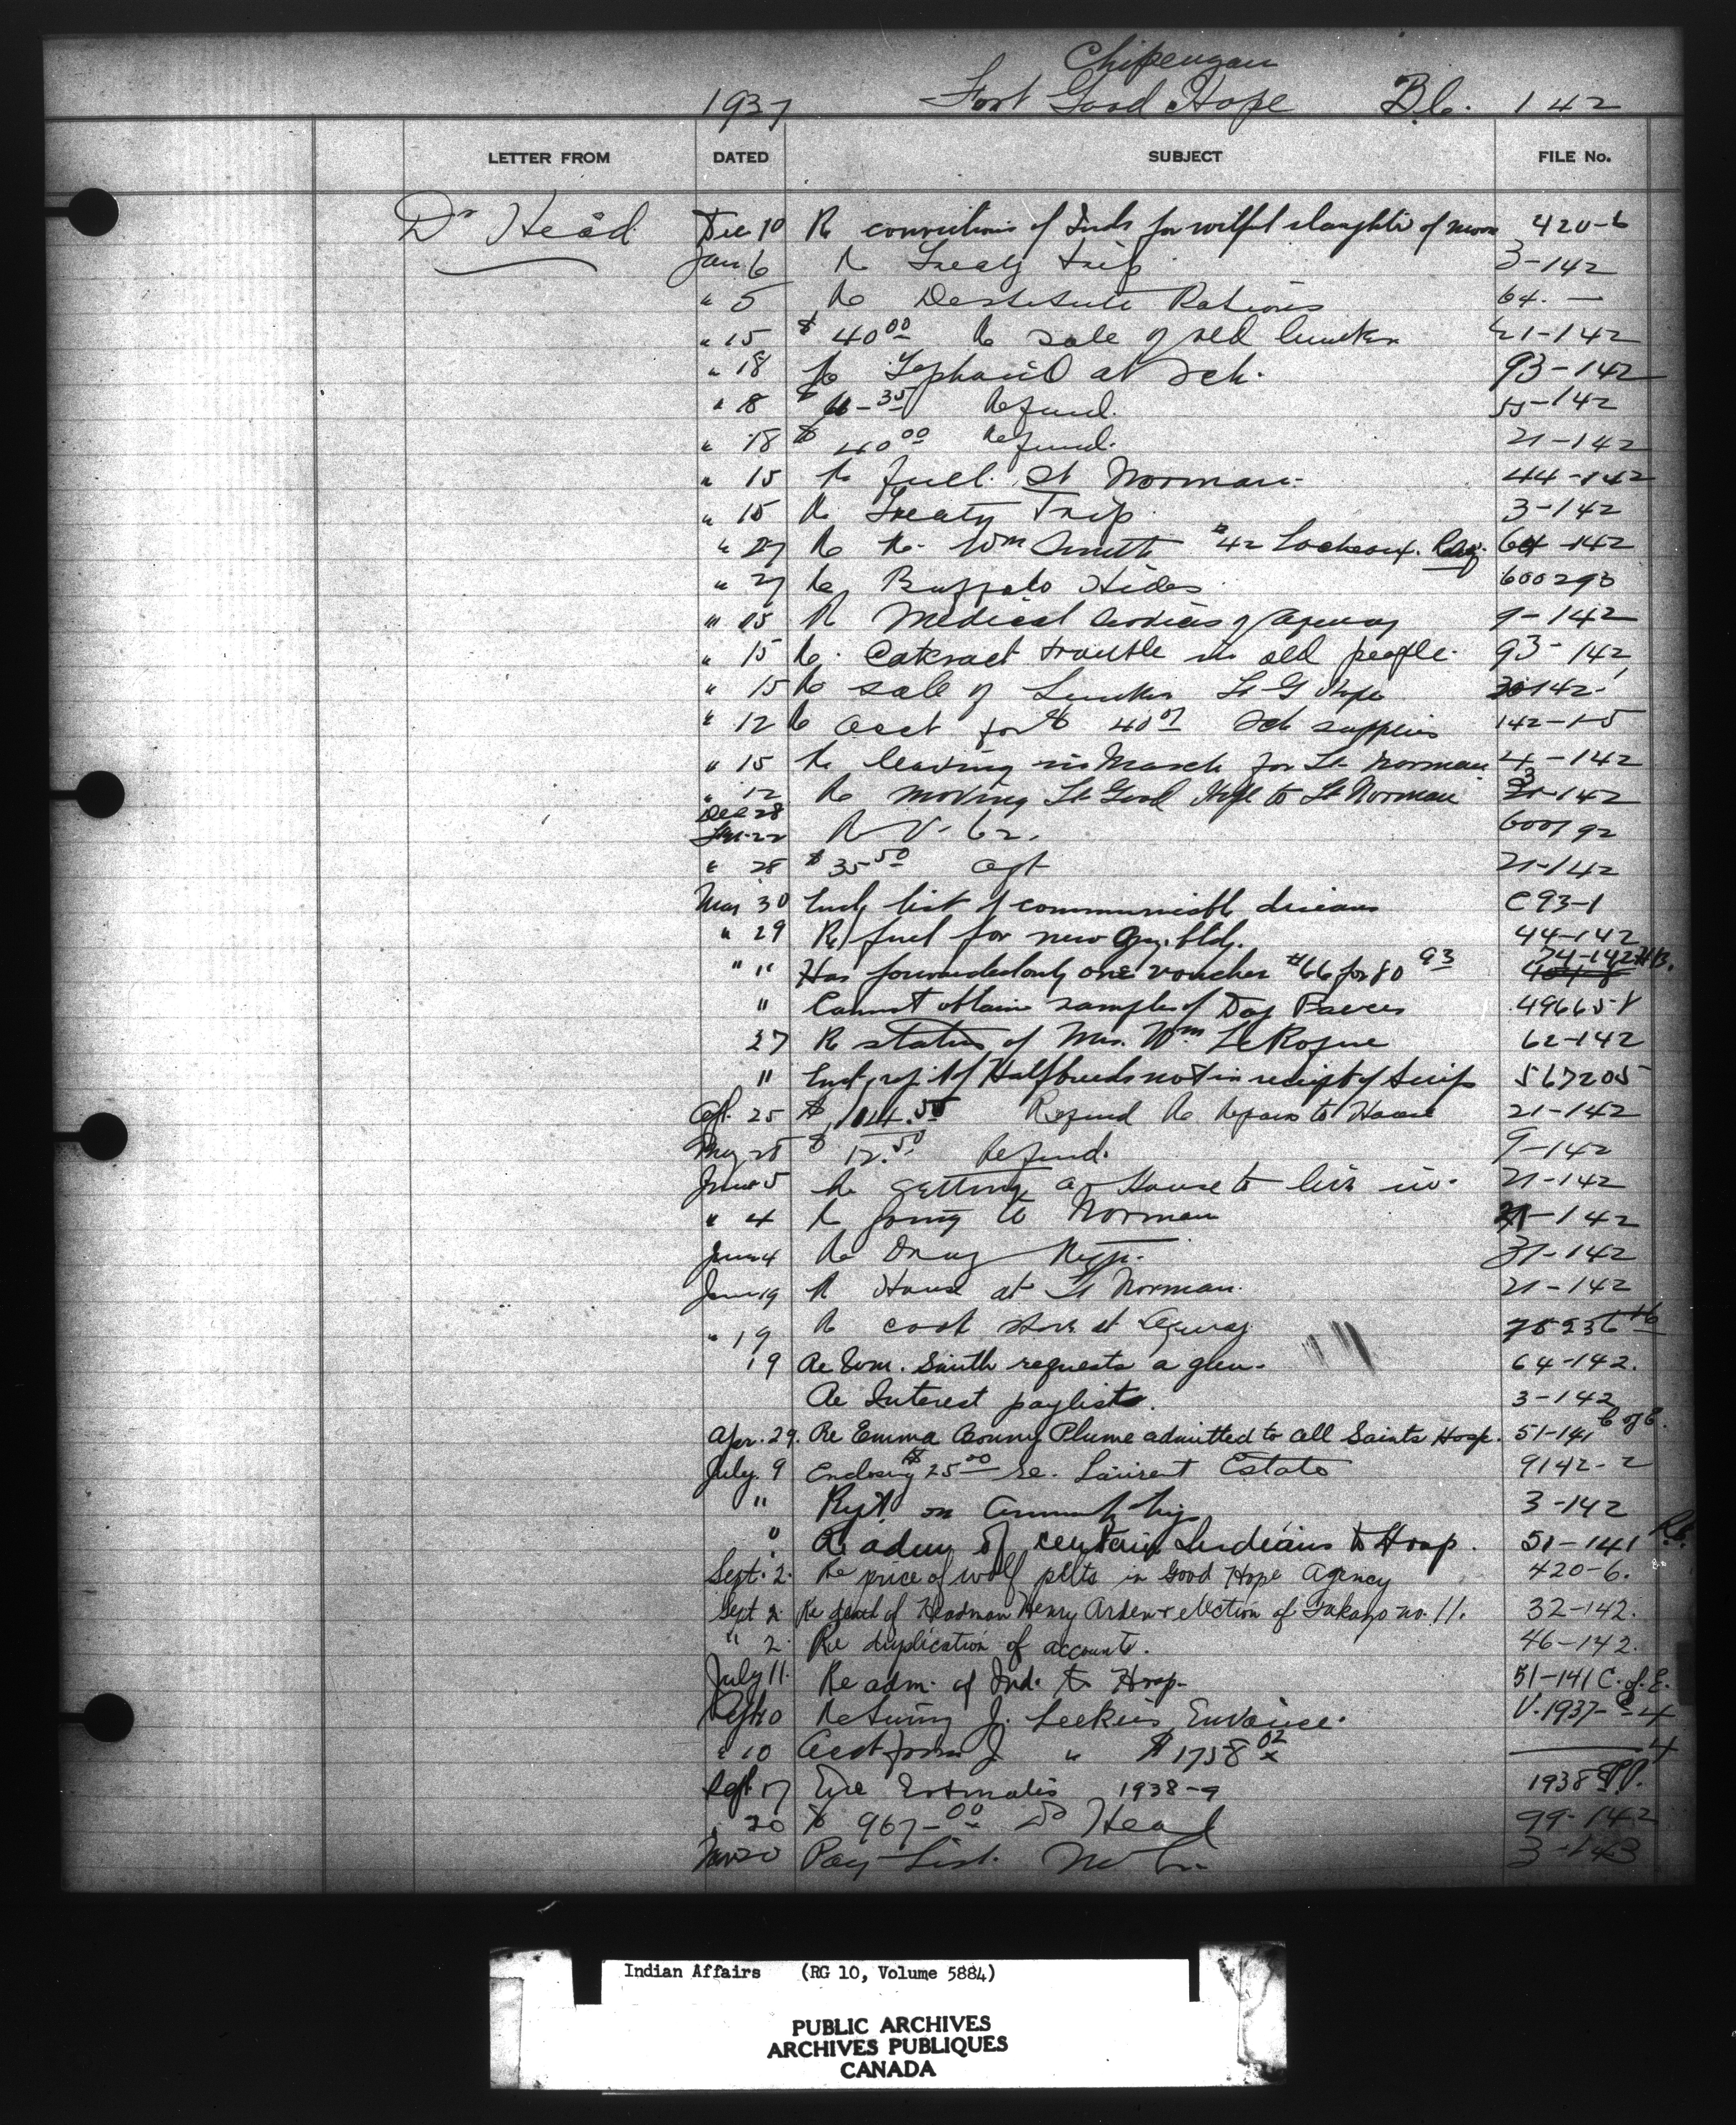 Chipeuyan
1937 Fort Good Hope 142
LETTER FROM DATED SUBJECT FILE No.
Dr Head Dec 10 Re convictions of Inds for wilful slaughter of moose 420-6
Jan 6 Re Treaty trip 3-142
" 5 Re Destitute Rations 64. —
" 15 $40.00 Re sale of old lumber 21-142
" 18 Re Typhoid at Sch. 93-142
" 18 Refund. 55-142
" 18 $40.00 Refund. 21-142
" 15 Re fuel. Ft Norman. 44-142
" 15 Re Treaty Trip. 3-142
" 27 Re Re. Wm Smith #42 Locheaux. 64-142
" 27 Re Buffalo Hides 600293
" 15 Re Medical Services of Agency 9-142
" 15 Re. Cataract trouble in old people. 93-142
" 15 Re sale of Lumber Ft G Hope
" 12 Re acct for $40.07 Sch supplies 142-1-5
" 15 Re leaving in March for Ft Norman 4-142
" 12 Re moving Ft Good Hope to Ft Norman
Dec 28
Re V-62. 600192
" 28 $35.50 21-142
Mar 30 Encl list of communicable diseases C93-1
" 29 Re fuel for new Agy. bldg. 44-142
" " Has forwarded only one voucher #66 for 80.93 74-142 H.B.
" Cannot obtain samples of Dog Faeces 496658
27 Re status of Mrs. Wm LeRoque 62-142
" Halfbreeds not in receipt of scrip 567205
Apl. 25 $104.50 Refund Re Repairs to House 21-142
May 28 $12.50 Refund. 9-142
June 5 Re getting a House to live in. 21-142
" 4 Re going to Norman
June 4 Re Drug 31-142
June 19 Re House at Ft Norman. 21-142
" 19 Re cook stove at Agency
19 Re Wm. Smith requests a glen. 64-142.
Re Interest paylists. 3-142
Apr. 29. Re Emma Plume admitted to All Saints Hosp. 51-141 C of E.
July 9 Enclosing $25.00 re. Laurent Estate 9142-2
" Rept. on 3-142
" Re adm of certain Indians to Hosp. 51-141
Sept. 2. Re price of wolf pelts in Good Hope Agency 420-6.
Sept 2. Re death of Headman Henry Arden & election of no. 11. 32-142.
" 2. Re duplication of accounts. 46-142.
July 11. Re adm. of Ind. to Hosp. 51-141 C. of E.
10 Returning J. Invoice.
" 10 Acct from J. " $1758.02
Sept. 17 Estimates 1938-9
20 $967.00 Dr Head 99-142
20 Pay List. 3-143
Indian Affairs (RG 10, Volume 5884)
PUBLIC ARCHIVES
ARCHIVES PUBLIQUES
CANADA